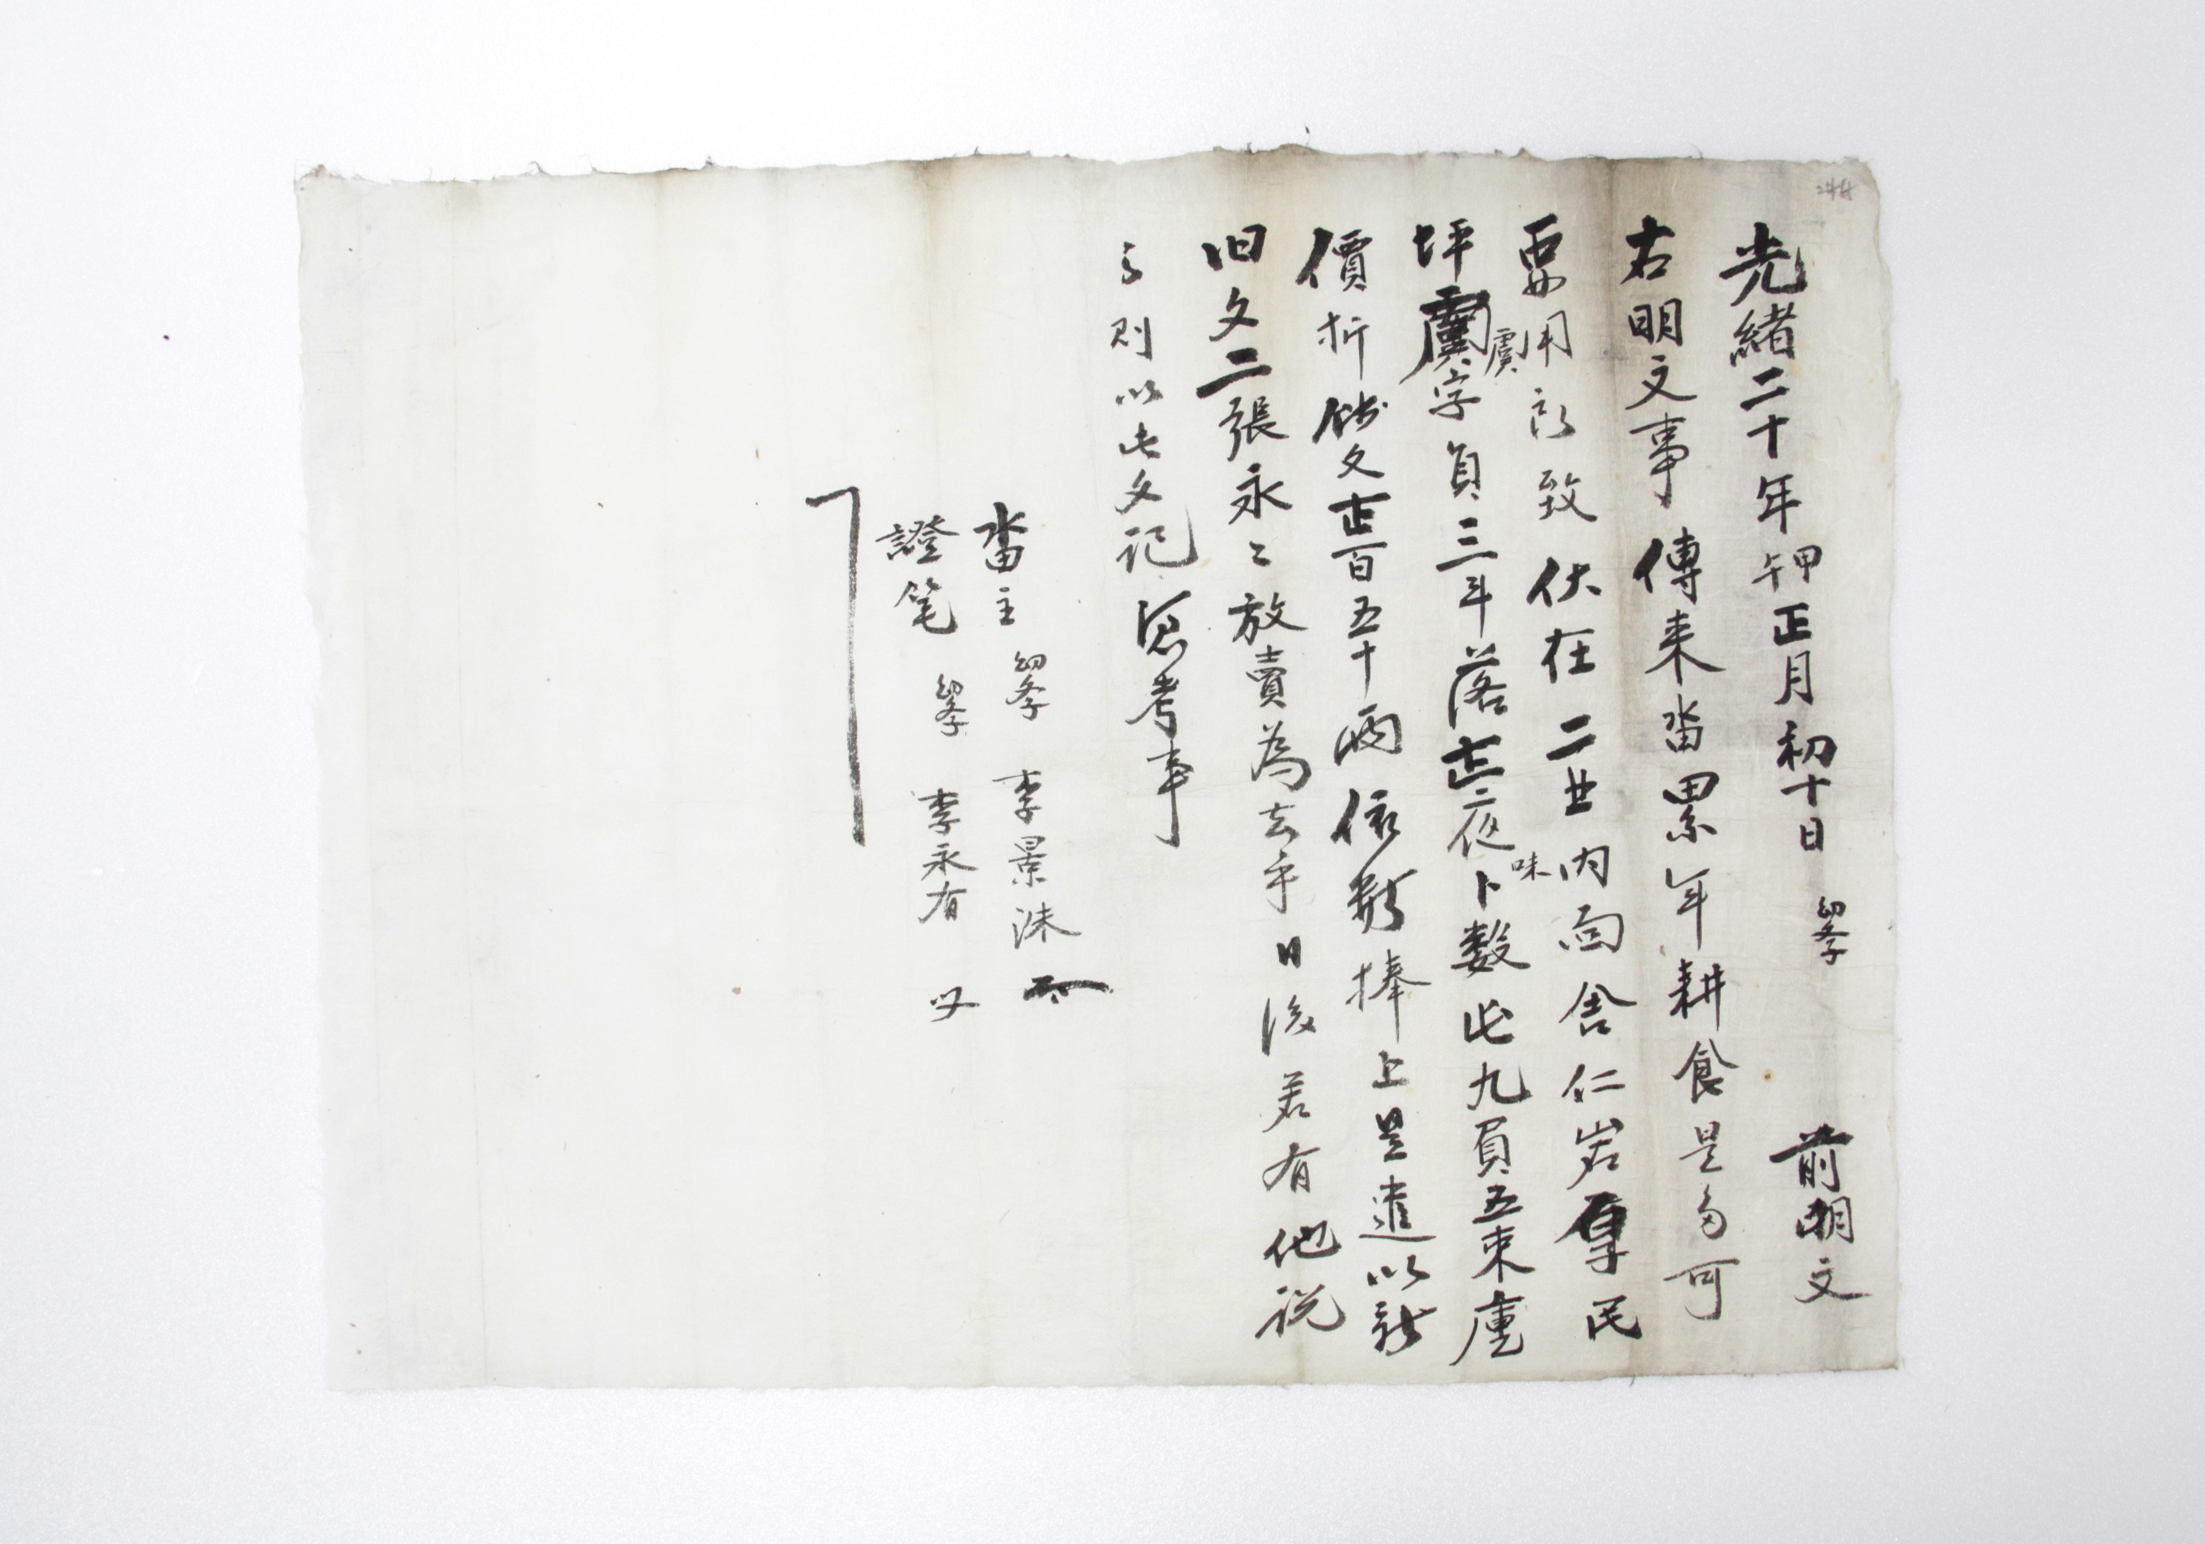 光緒二十年甲午正月初十日 幼學 前明文
右明文事傳来畓累年耕食是多可
要用所致伏在二北内面舍仁岩員民
坪虞字負三斗落正夜味卜數虍九負五束㐣
虞
價折錢文正百五十兩依數捧上是遣以新
旧文二張永々放賣爲去乎日後若有他説
之則以此文記憑考事
畓主 幼學 李景洙
證笔 幼學 李永有